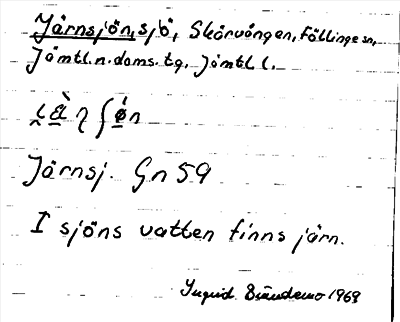 Järnsjön, sjö, Skärvången, Föllinge sn,
Jämtl. n. doms. tg, Jämtl l.
Järnsj. Gn 59
I sjöns vatten finns järn.
Ingrid Brändemo 1969